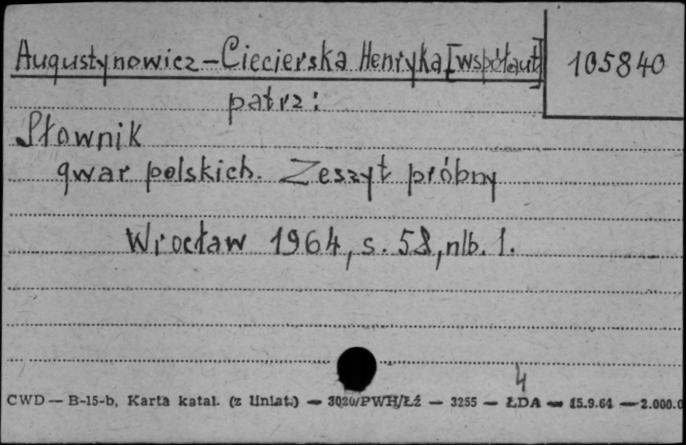 Augustynowicz-Ciecierska Henryka [współaut]
105840
patrz:
Słownik
gwar polskich. Zeszyt próbny
Wrocław 1964, s. 58, nlb. 1.
4
CWD — B-15-b, Karta katal. (z liniat.) — 3020/PWH/Łź — 3255 — ŁDA — 15.9.61 — 2.000.0